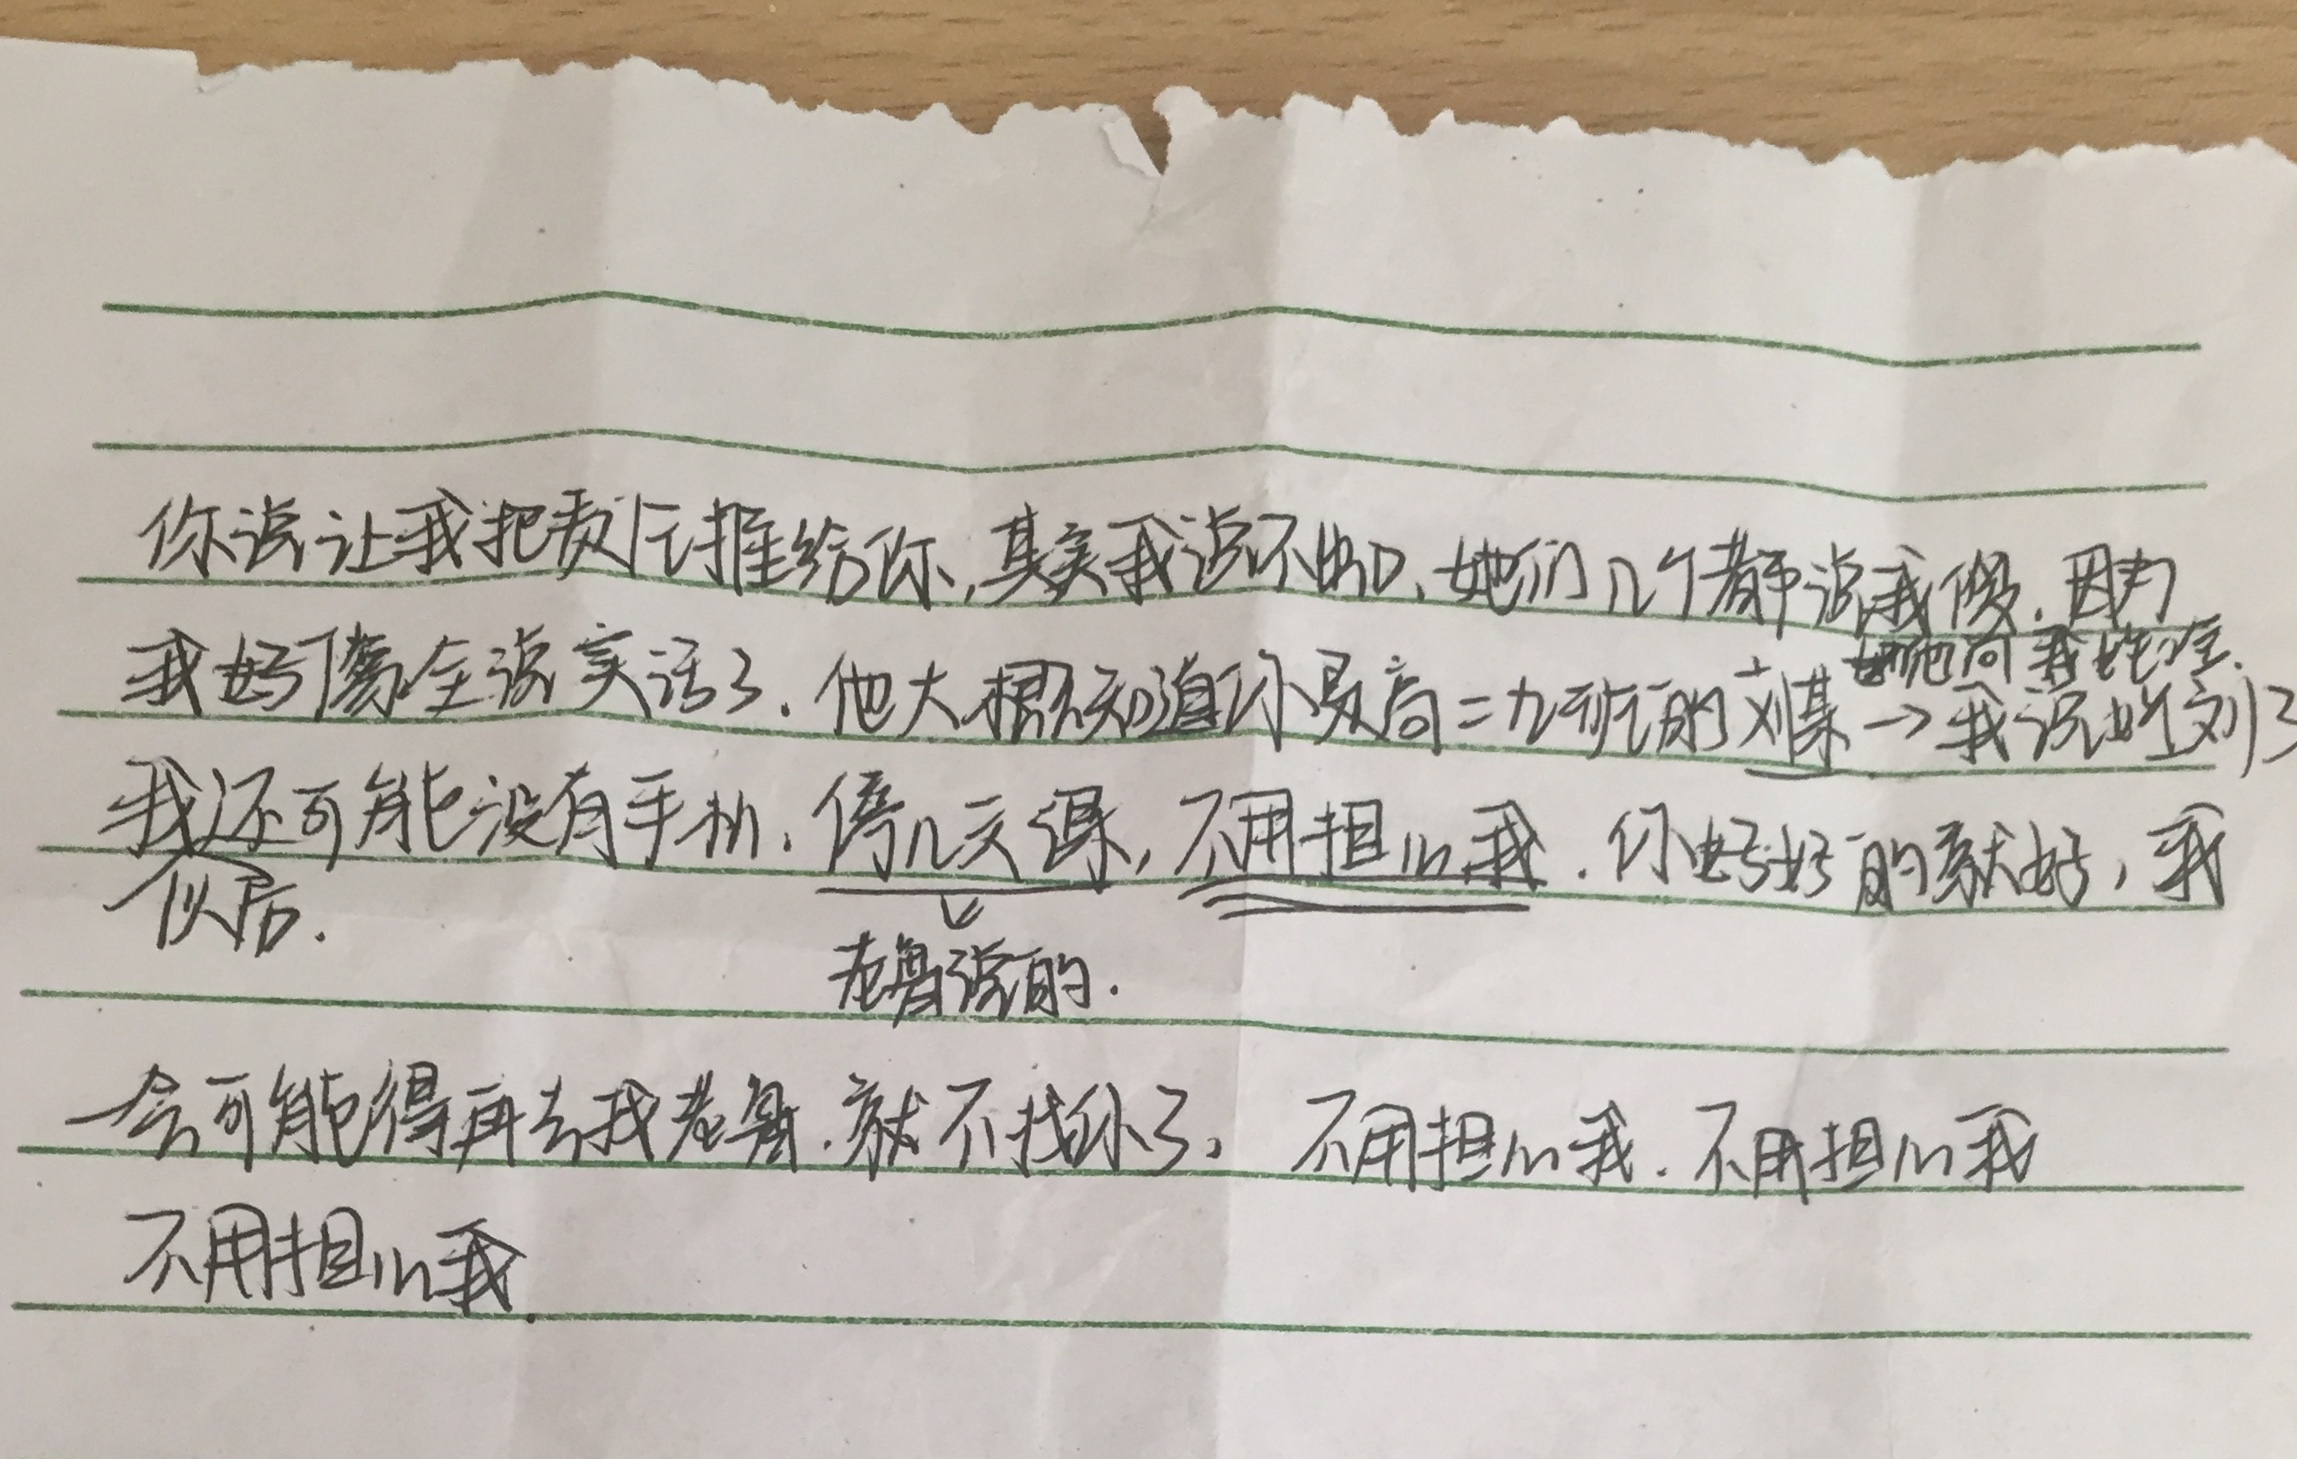 你说让我把责任推给你,其实我说不出口,她们几个都说我傻.因为
我好像全说实话了.他大概知道你是高二九班的刘某→我说姓刘了
她他问我姓啥.
我还可能没有手机.停几天课,不用担心我.你好好的就好,我
以后.
老鲁说的.
一会可能得再去找老鲁.就不找你了,不用担心我.不用担心我
不用担心我.